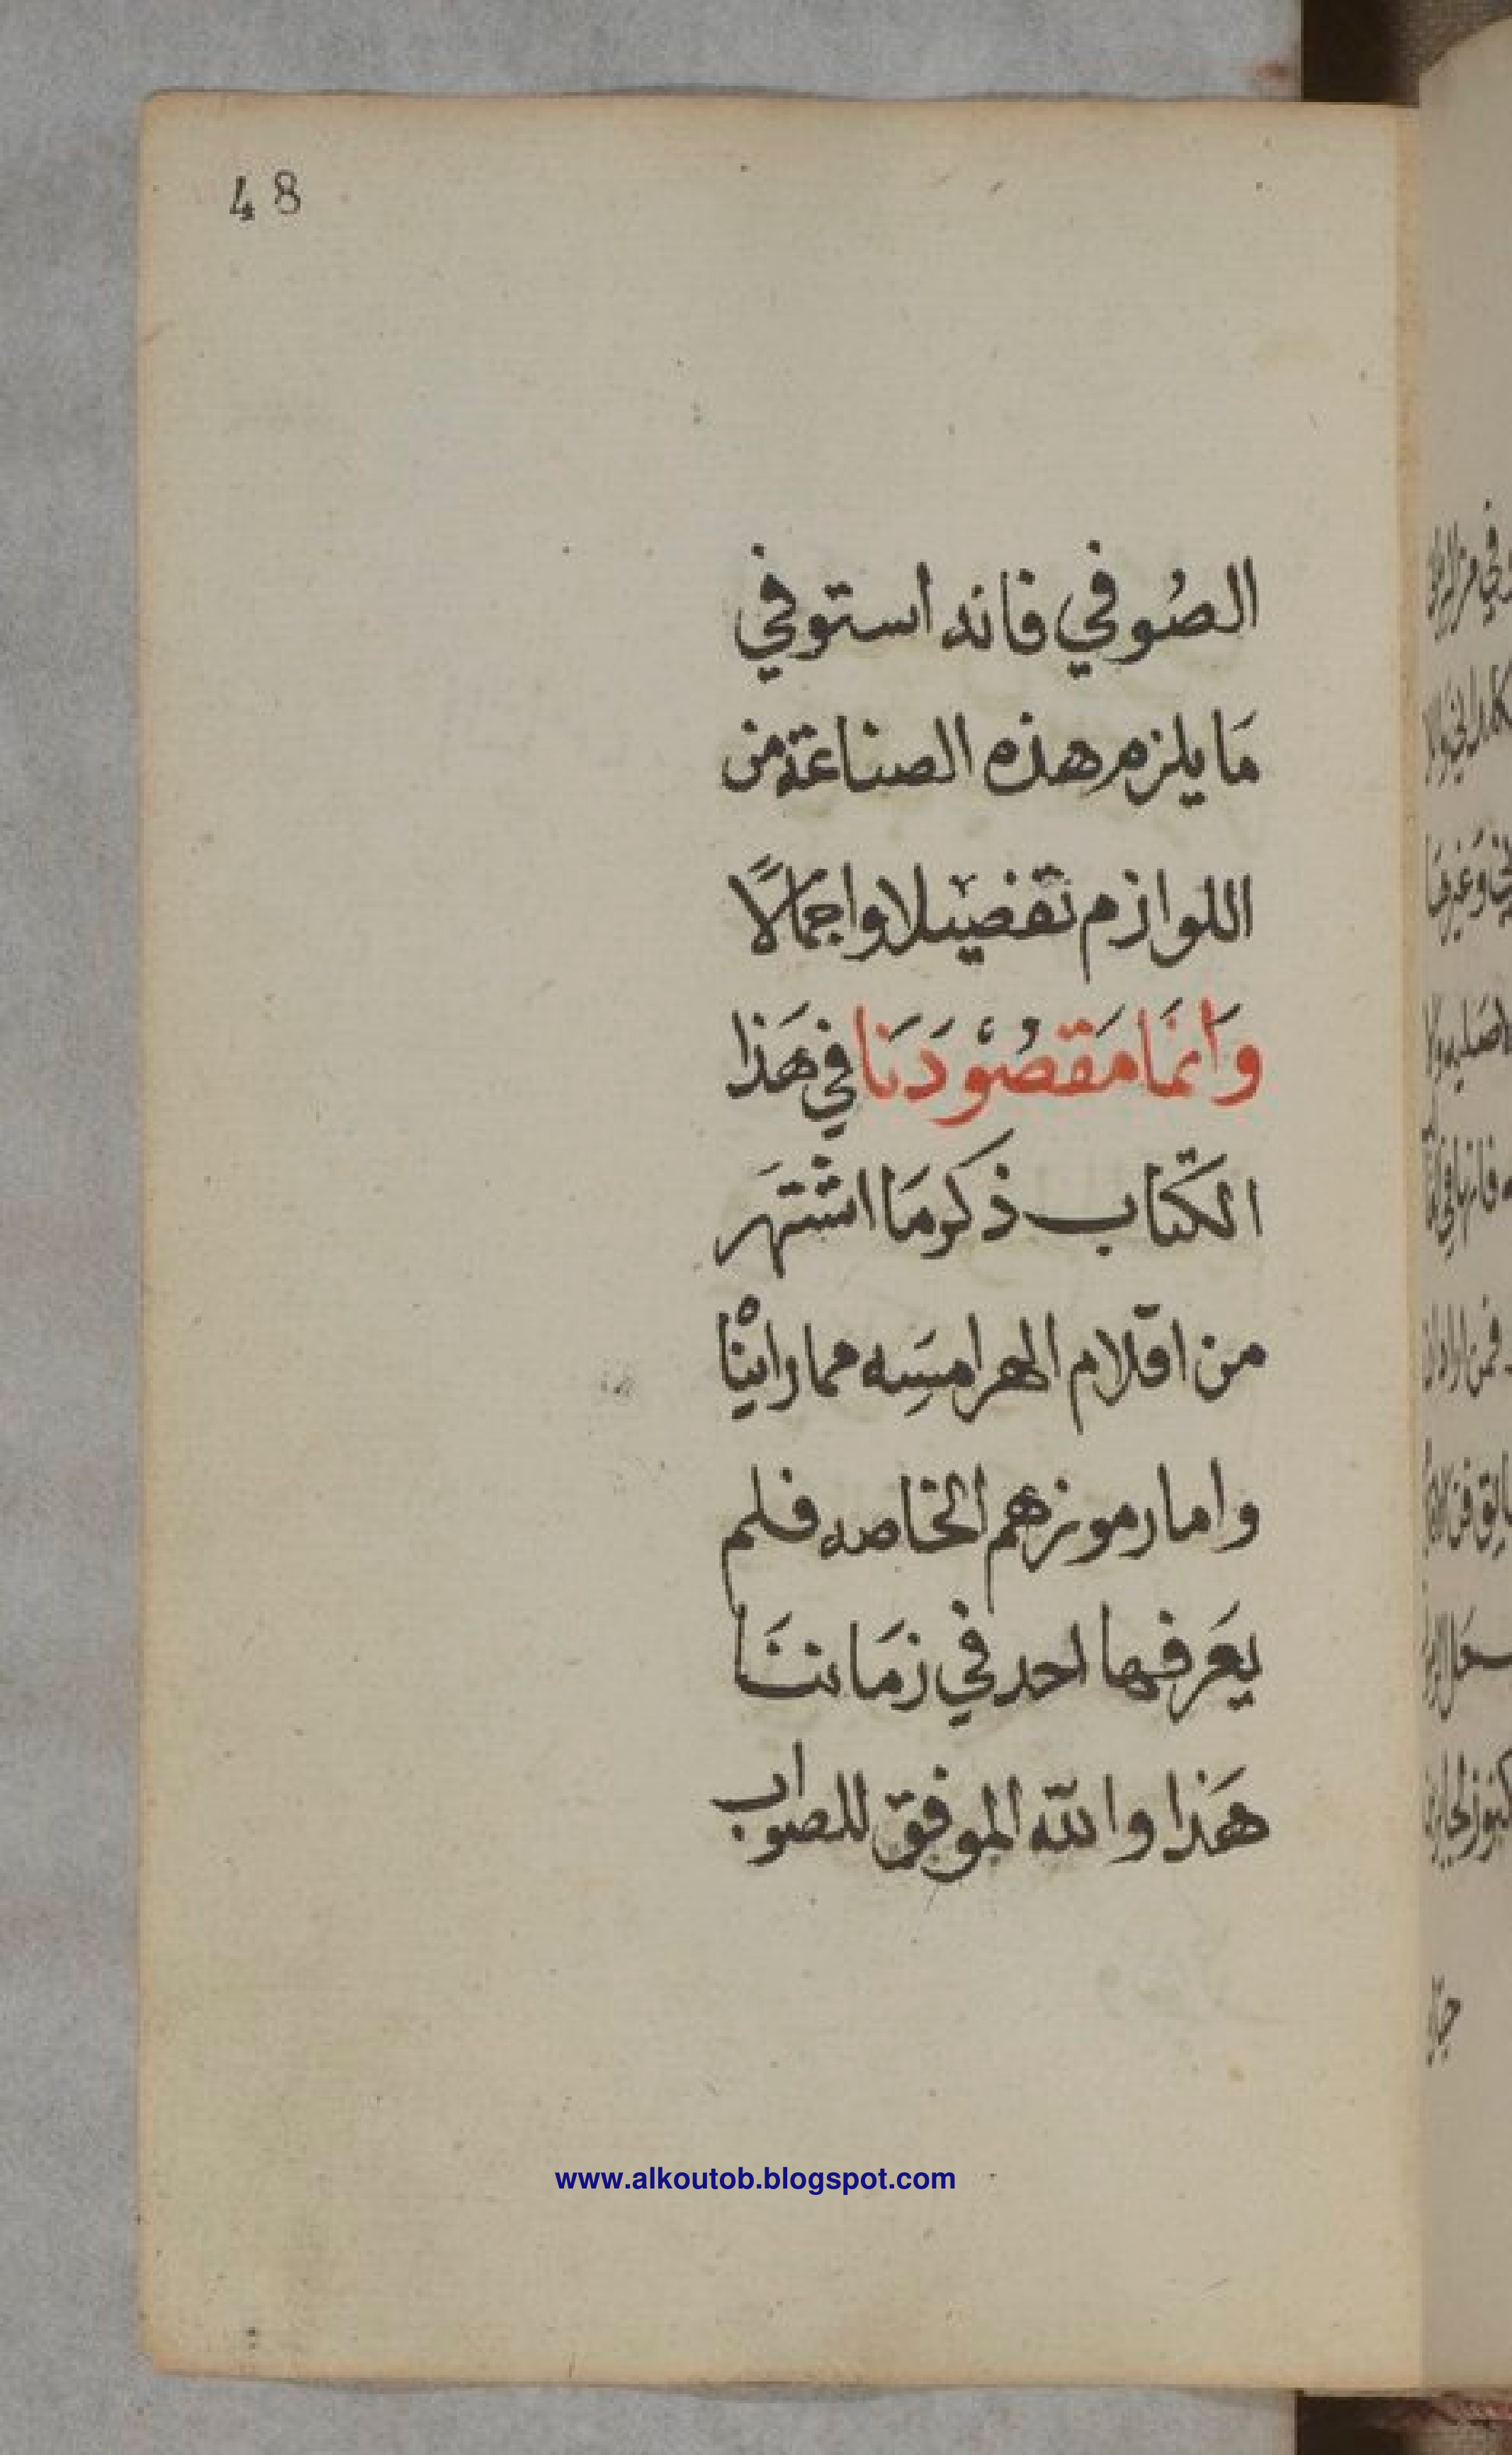 48
الصُوفي فانه استوفي
مَا يلزم هذه الصناعة من
اللوازم تفضيلا واجمالًا
وَانمَا مَقصُوْدَنَا في هَذا
الكتاب ذكر مَا اشتهَر
من اقلام الهرامسِه مما راينْا
واما رموزهم الخاصه فلم
يعَرفها احد في زمَاننَا
هَذا والله الموفق للصواب
www.alkoutob.blogspot.com